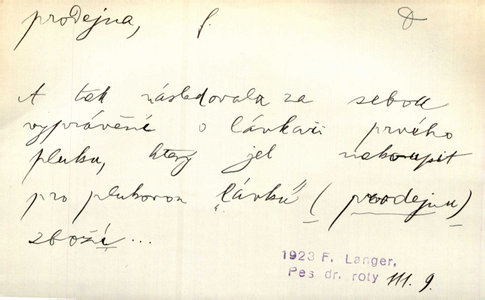 prodejna, f.
A tak následovala za sebou
vyprávění o lávkaři prvého
pluku, který jel nakoupit
pro plukovou „lávku“ (prodejnu)
zboží ...
1923 F. Langer,
Pes dr. roty III. 9.